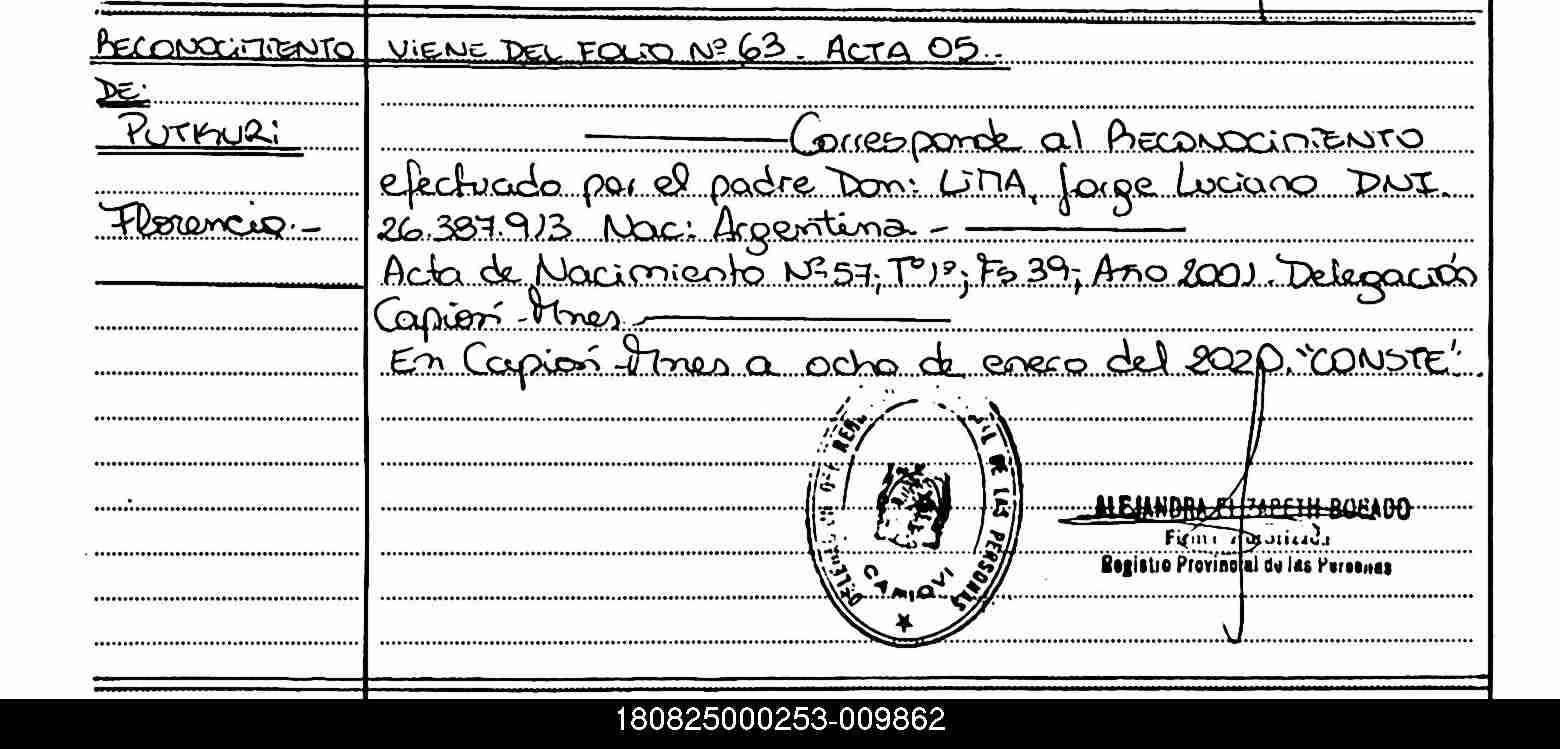 RECONOCIMIENTO
DE:
PUTKURI
Florencia.-
VIENE DEL FOLIO Nº 63. ACTA 05.
Corresponde al RECONOCIMIENTO
efectuado por el padre Don: LIMA, Jorge Luciano DNI.
26.387.913 Nac: Argentina -
Acta de Nacimiento Nº 57; Tº 1º; Fs 39; Año 2001. Delegación
Capioví - Mnes
En Capioví - Mnes a ocho de enero del 2020. "CONSTE".
DE LAS PERSONAS
ALEJANDRA ELIZABETH BOGADO
Firma Autorizada
Registro Provincial de las Personas
180825000253-009862